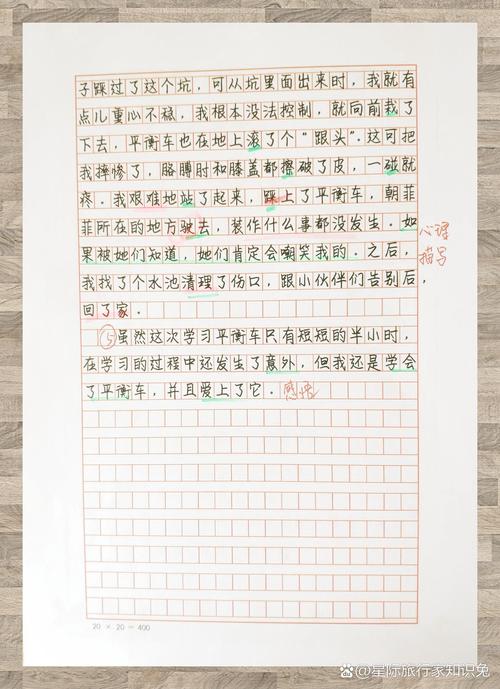 子踩过了这个坑，可从坑里面出来时，我就有
点儿重心不稳，我根本没法控制，就向前栽了
下去，平衡车也在地上滚了个“跟头”.这可把
我摔惨了，胳膊肘和膝盖都擦破了皮，一碰就
疼.我艰难地站了起来，踩上了平衡车，朝菲
菲所在的地方驶去，装作什么事都没发生.如
果被她们知道，她们肯定会嘲笑我的.之后，
我找了个水池清理了伤口，跟小伙伴们告别后，
回了家.
心理
描写
⑤虽然这次学习平衡车只有短短的半小时，
在学习的过程中还发生了意外，但我还是学会
了平衡车，并且爱上了它.
感悟
20 × 20 = 400
@星际旅行家知识兔